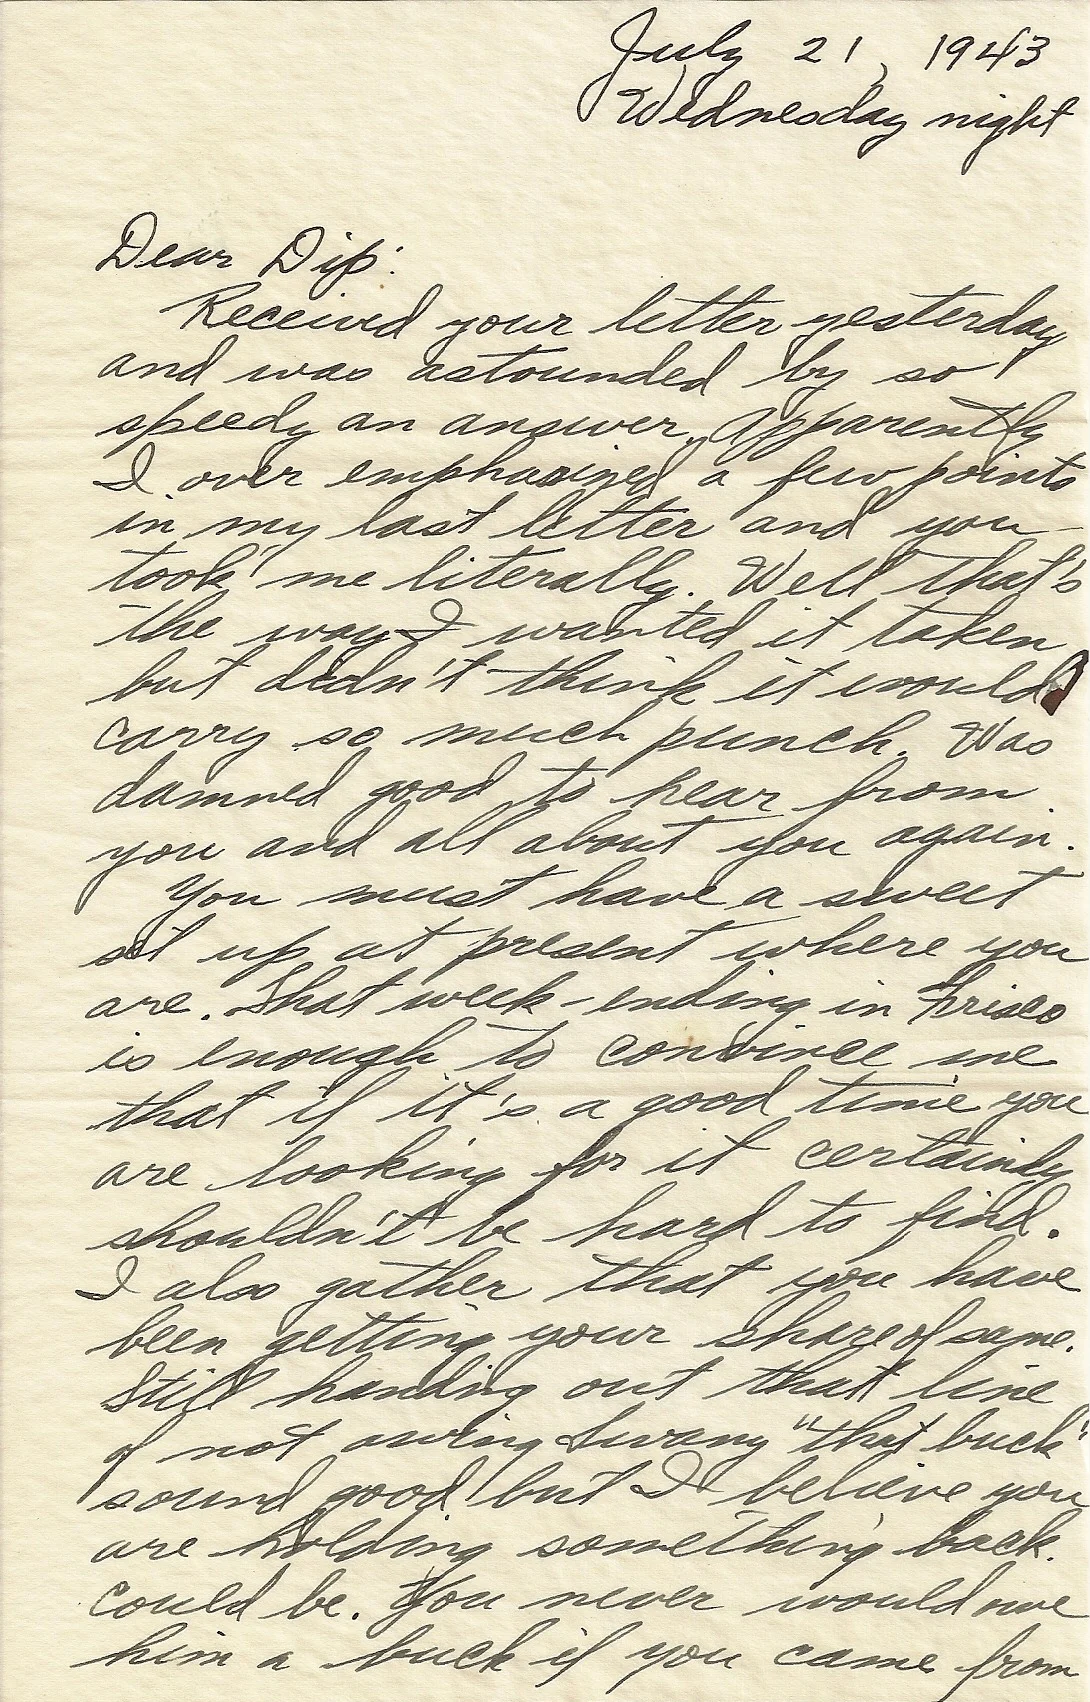 July 21, 1943
Wednesday night
Dear Dip:
Received your letter yesterday
and was astounded by so
speedy an answer. Apparently
I over emphasized a few points
in my last letter and you
took me literally. Well that's
the way I wanted it taken
but didn't think it would
carry so much punch. Was
damned good to hear from
you and all about you again.
You must have a sweet
set up at present where you
are. That week-ending in Frisco
is enough to convince me
that if it's a good time you
are looking for it certainly
shouldn't be hard to find.
I also gather that you have
been getting your share of same.
Still handing out that line
of not owing Swany "that buck"
sound good but I believe you
are holding something back.
could be. You never would owe
him a buck if you came from